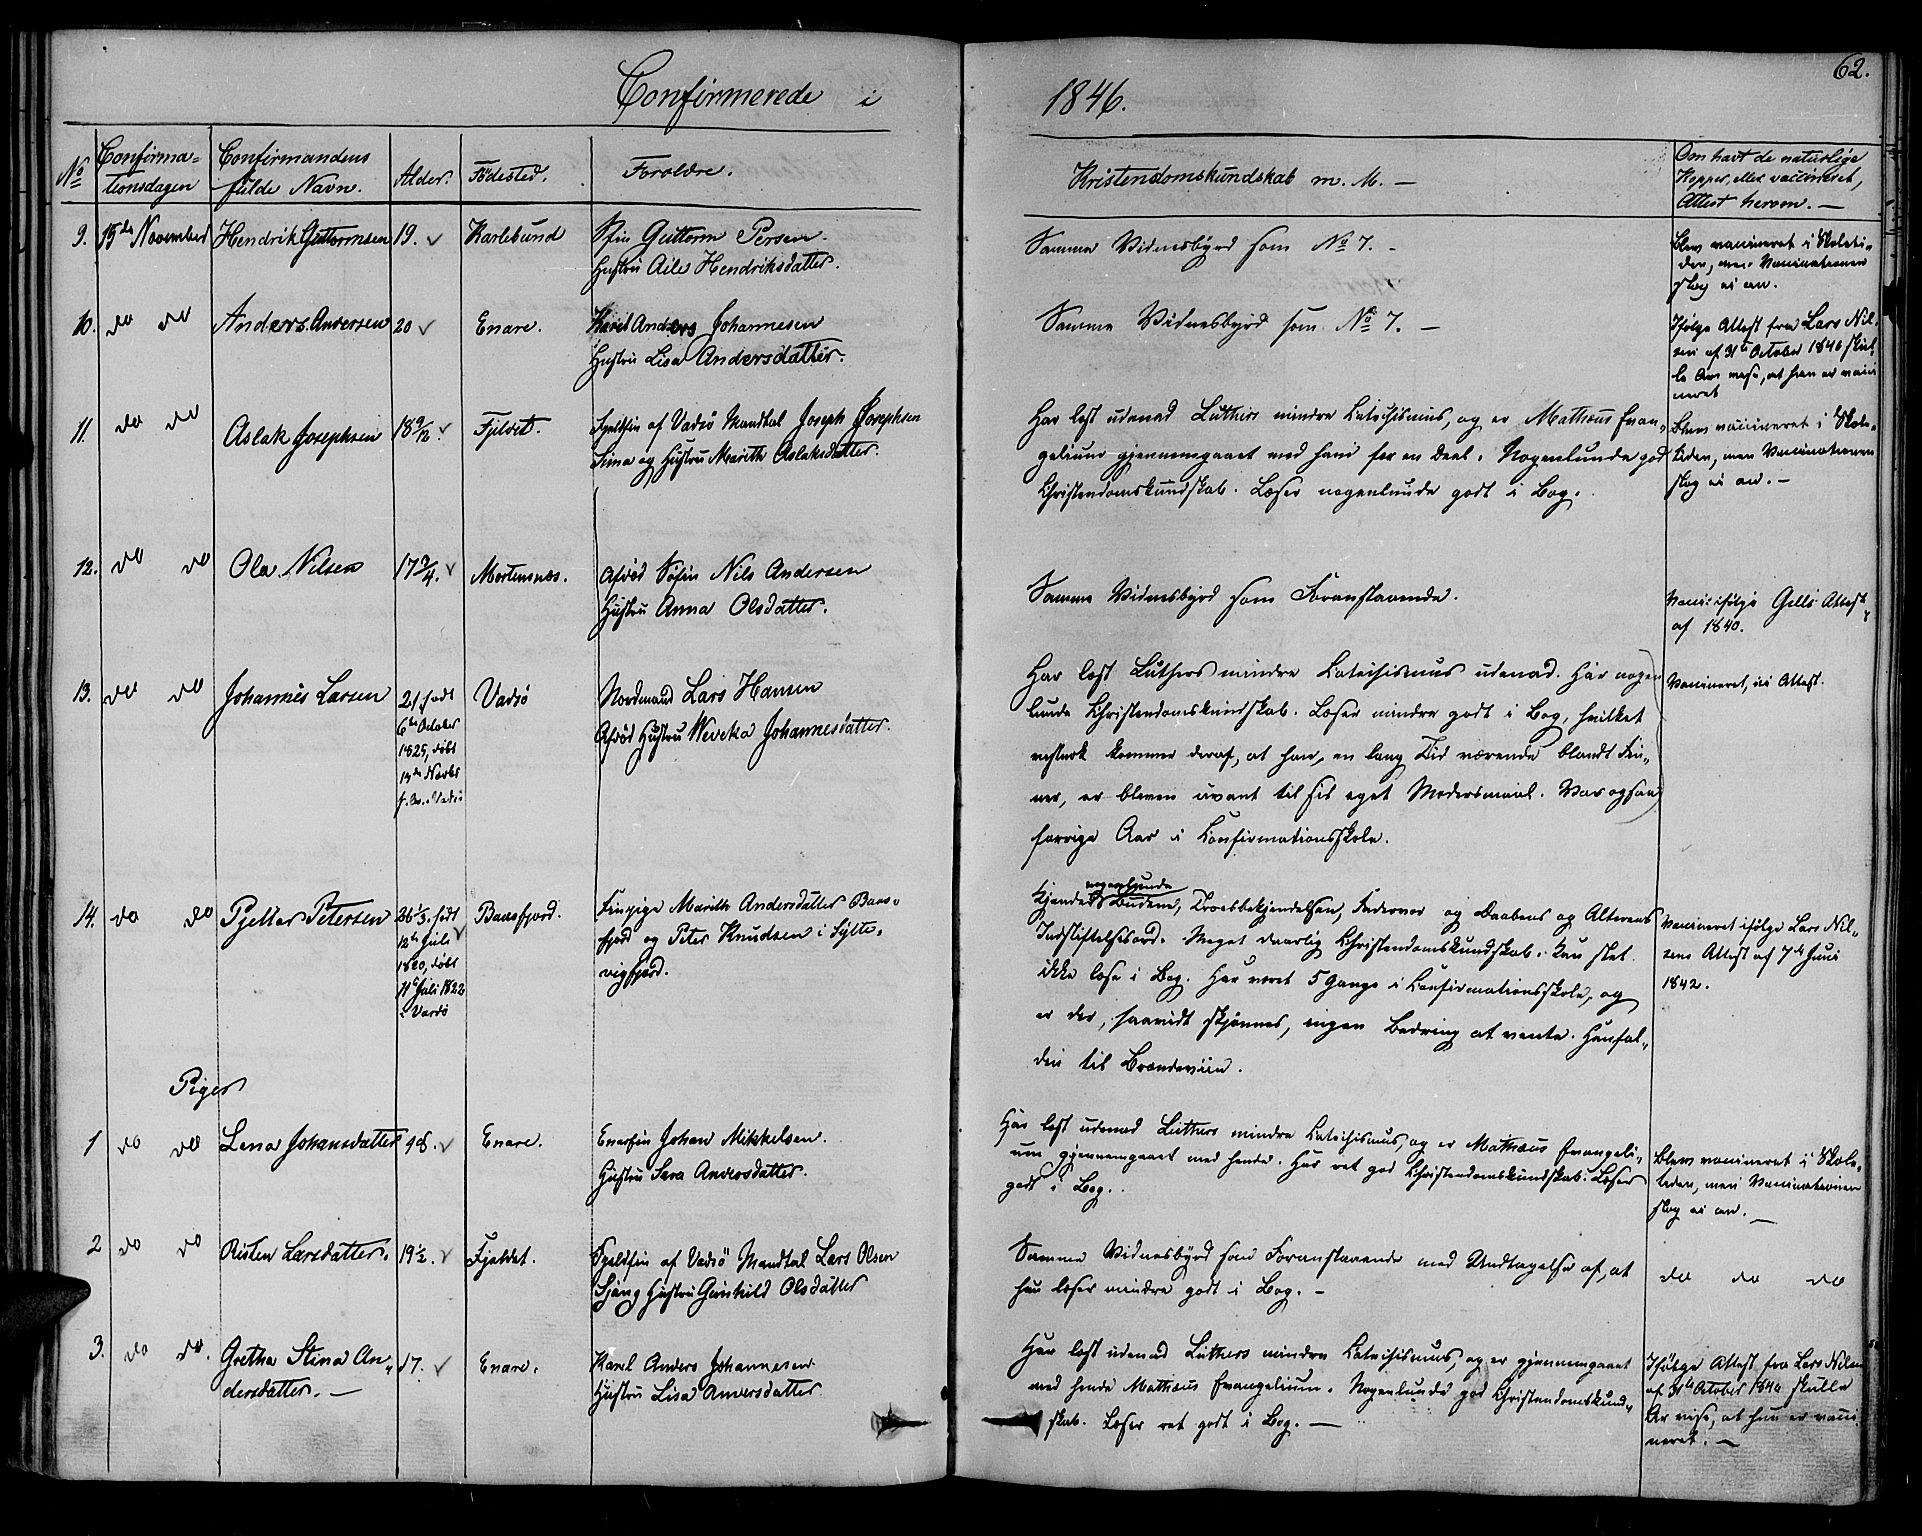 Confirmerede i 1846.
62.
No
Confirma=
tionsdagen
Confirmandens
fulde Navn.
Alder.
Fødested.
Forældre.
Kristendomskundskab m. M. —
Om havt de naturlige
Kopper, eller vaccineret,
Attest herom. —
9. 15de November Hendrik Guttormsen 19. Karlebund
Sfin Guttorm Persen.
Hustru Aile Hendriksdatter.
Samme Vidnesbyrd som No 7. -
Blev vaccineret i Skoleti-
den, men Vaccinationen
slog ei an.
10. do do Anders Andersen 20 Enare.
Karel Anders Johannesen
Hustru Lisa Andersdatter.
Samme Vidnesbyrd som No 7. —
Ifølge Attest fra Lars Nil-
sen af 31te October 1846 skul-
le Arr vise, at han er vacci
neret
11. do do Aslak Josephsen 18 9/12. Fjeldet.
Fjeldfin af Vadsø Mandtal Joseph Josephsen
Sima og Hustru Marith Aslaksdatter.
Har læst udenad Luthers mindre Catechismus, og er Mathæus Evan-
gelium gjennemgaaet med ham for en Deel. Nogenlunde god
Christendomskundskab. Læser nogenlunde godt i Bog.
Blev vaccineret i Skole-
tiden, men Vaccinationen
slog ei an. —
12. do do Ola Nilsen 17 3/4. Mortensnæs.
Afdød Søfin Nils Andersen
Hustru Anna Olsdatter.
Samme Vidnesbyrd som Foranstaaende.
Vacc: ifølge Gells Attest
af 1840.
13. do do Johannes Larsen
21, født
6te October
1825, døbt
13de Novbr
Vadsø
Vadsø
Nordmand Lars Hansen
Afdød Hustru Weveka Johannesdatter.
Har læst Luthers mindre Catechismus udenad. Har nogen
lunde Christendomskundskab. Læser mindre godt i Bog, hvilket
vistnok kommer deraf, at han, en lang Tid værende blandt Fin-
ner, er bleven uvant til sit eget Modersmaal. Var ogsaa
forrige Aar i Confirmationsskole.
Vaccineret, iei Attest.
14. do do Pjetter Petersen
26 1/3. født
12te Juli
1820, døbt
11te Juli 1822
i Vardø
Baasfjord.
Finpige Marith Andersdatter Baas-
fjord og Peter Knudsen i Sylte-
vigfjord.
nogenlunde
Kjender Budene, Troesbekjendelsen, Fadervor og Daabens og Alterens
Indstiftelsesord. Meget daarlig Christendomskundskab. Kan slet
ikke læse i Bog. Har været 5 Gange i Confirmationsskole, og
er der, saavidt skjønnes, ingen Bedring at vente. Henfal-
den til Brændeviin.
Vaccineret ifølge Lars Nil-
sens Attest af 7de Juni
1842.
Piger
1 do do Lena Johansdatter 18. Enare.
Enarfin Johan Mikkelsen.
Hustru Sara Andersdatter.
Har læst udenad Luthers mindre Catechismus, og er Mathæus Evangeli-
um gjennemgaaet med hende. Har ret god Christendomskundskab. Læser
godt i Bog.
Blev vaccineret i Skole-
tiden, men Vaccinationen
slog ei an. —
2 do do Risten Larsdatter. 19 1/2. Fjeldet.
Fjeldfin af Vadsø Mandtal Lars Olsen
Sjang Hustru Gunhild Olsdatter
Samme Vidnesbyrd som Foranstaaende med Undtagelse af, at
hun læser mindre godt i Bog. -
do do do
3. do do. Gretha Stina An-
dersdatter. — 17. Enare.
Karel Anders Johannesen
Hustru Lisa Andersdatter
Har læst udenad Luthers mindre Catechismus, og er gjennemgaaet
med hende Mathæus Evangelium. Nogenlunde god Christendomskund-
skab. Læser ret godt i Bog. —
Ifølge Attest fra Lars Nilsen
af 31te October 1846 skulle
Ar vise, at hun er vacci
neret. —